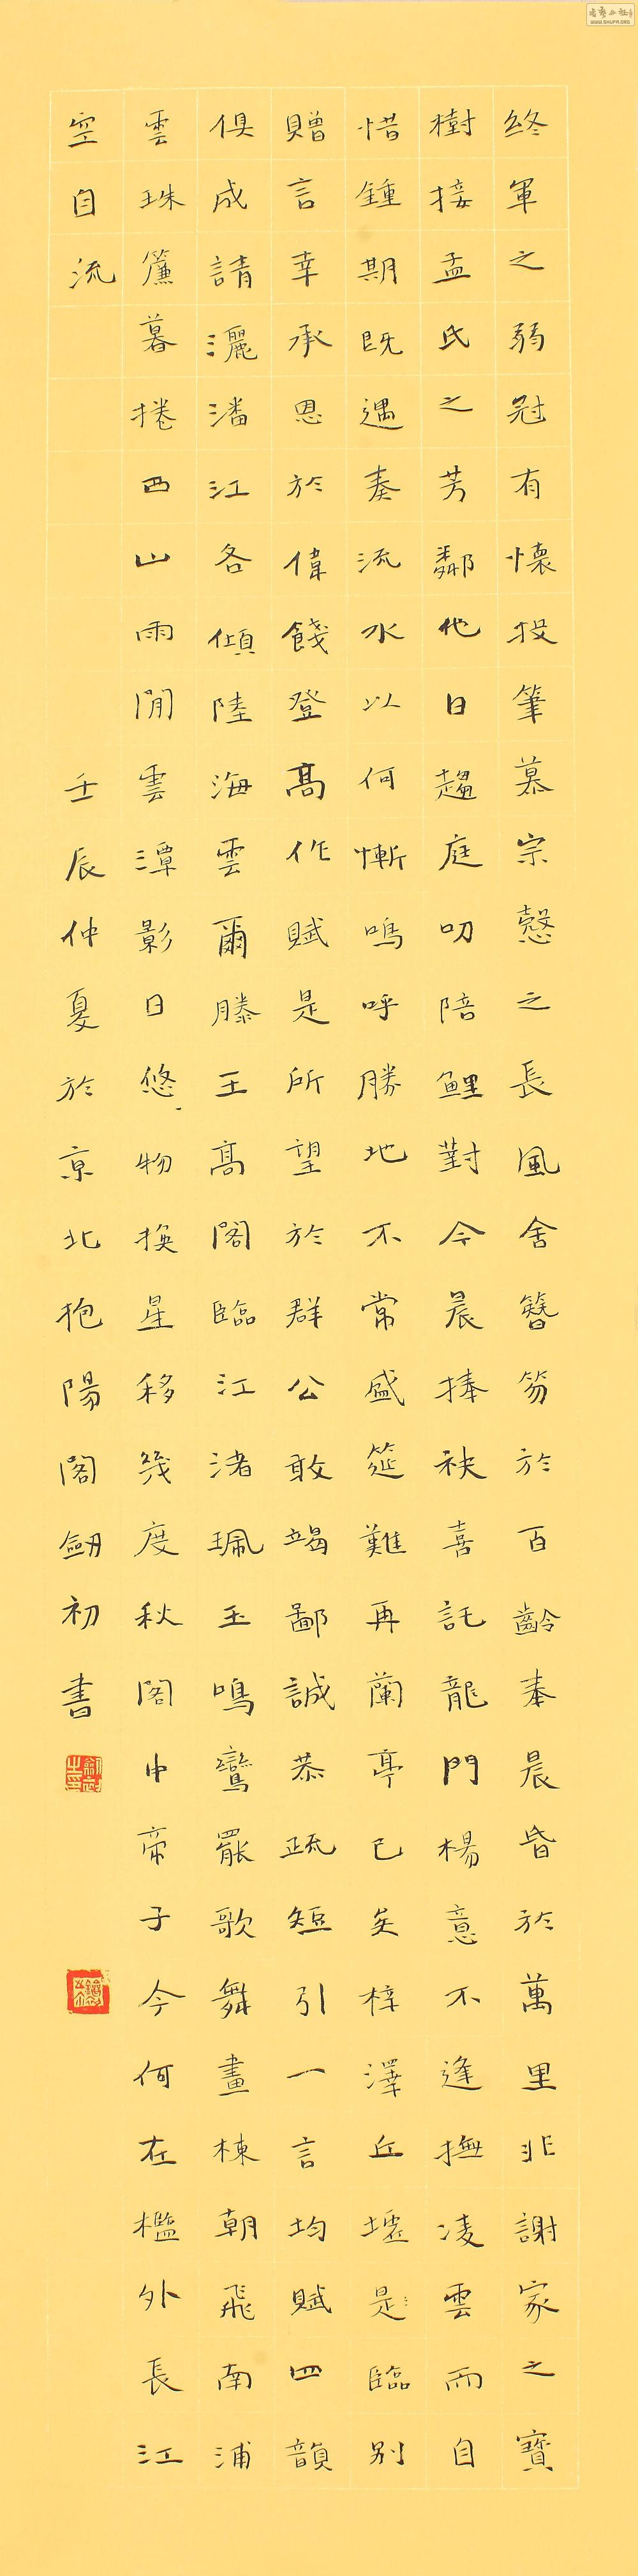 終軍之弱冠有懷投筆慕宗慤之長風舍簪笏於百齡奉晨昏於萬里非謝家之寶
樹接孟氏之芳鄰他日趨庭叨陪鯉對今晨捧袂喜託龍門楊意不逢撫凌雲而自
惜鍾期既遇奏流水以何慚嗚呼勝地不常盛筵難再蘭亭已矣梓澤丘墟是臨別
贈言幸承恩於偉餞登高作賦是所望於群公敢竭鄙誠恭疏短引一言均賦四韻
俱成請灑潘江各傾陸海雲爾滕王高閣臨江渚珮玉鳴鸞罷歌舞畫棟朝飛南浦
雲珠簾暮捲西山雨閒雲潭影日悠〻物換星移幾度秋閣中帝子今何在檻外長江
空自流
壬辰仲夏於京北抱陽閣劍初書
WWW.SHUFA.ORG